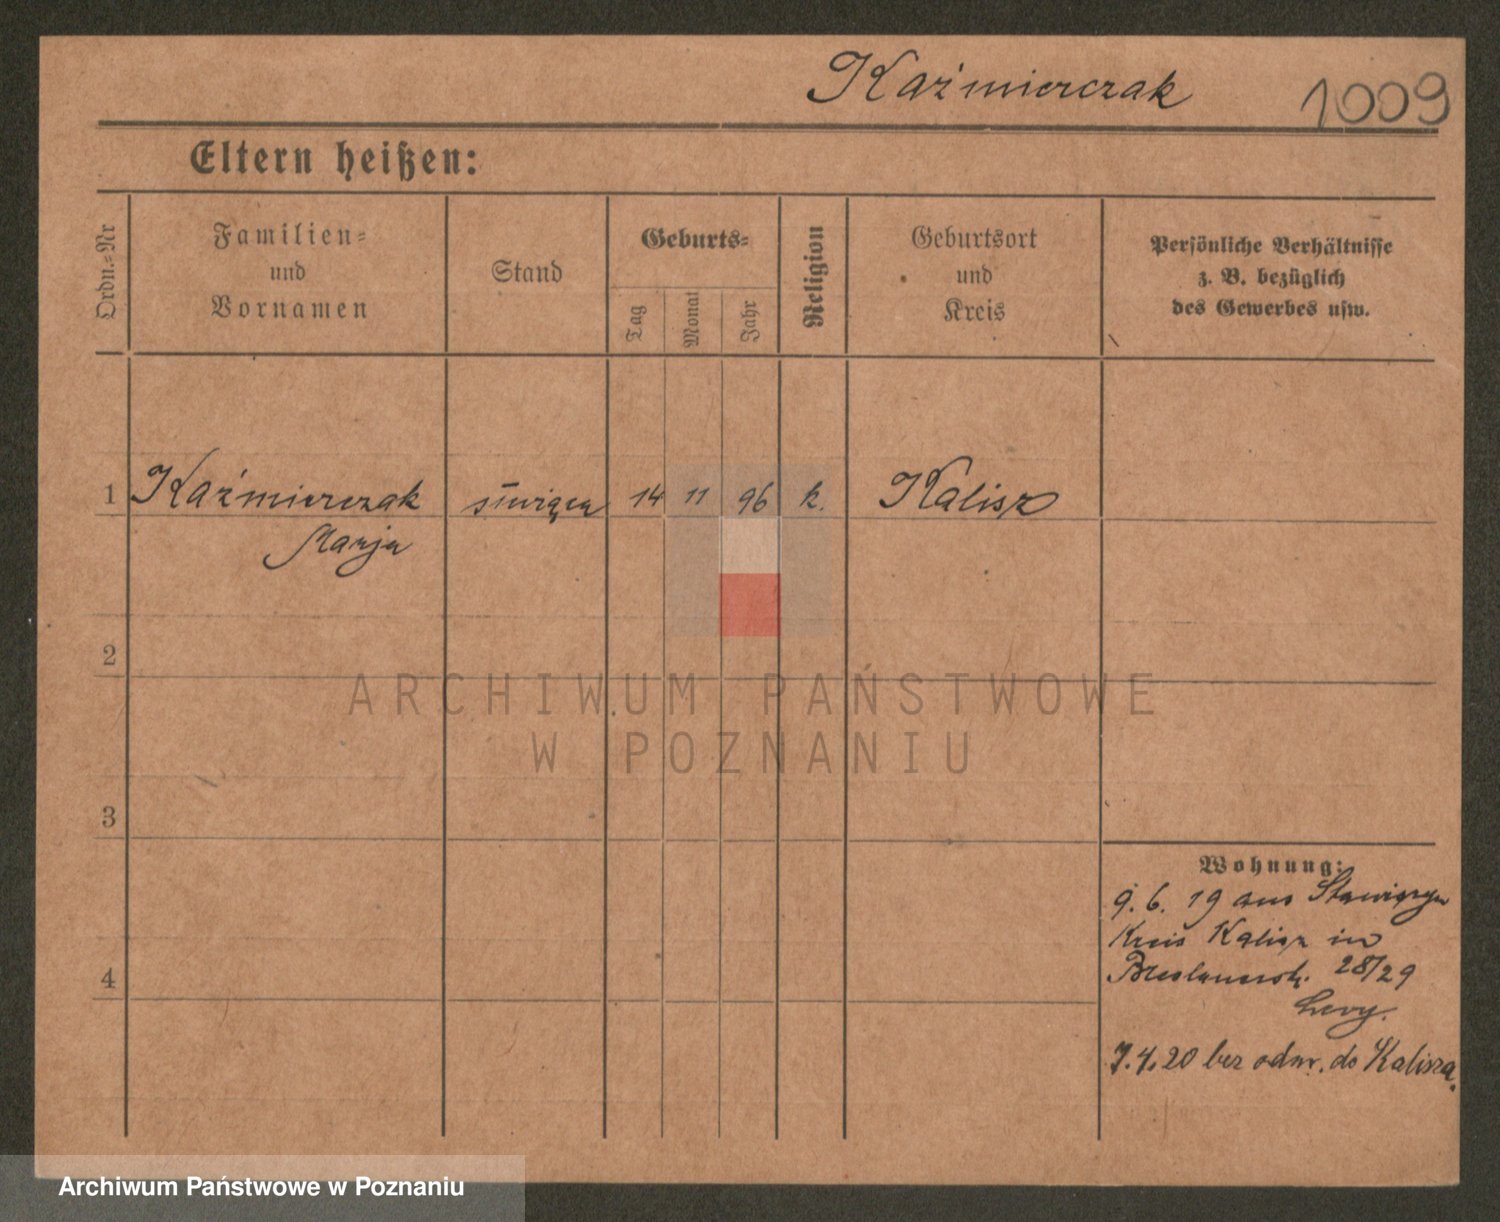 Kaźmierczak 1009
Eltern heißen:
Ordn.-Nr
Familien-
und
Vornamen
Stand
Geburts-
Tag
Monat
Jahr
Religion
Geburtsort
und
Kreis
Persönliche Verhältnisse
z. B. bezüglich
des Gewerbes usw.
1 Kaźmierczak 14 11 96 k. Kalisz
Marja
2
ARCHIWUM PAŃSTWOWE
W POZNANIU
3
Wohnung:
9. 6. 19 aus Stawiszyn
Kreis Kalisz in
4
Breslauerstr. 28/29
Levy.
7.4.20 bez odm. do Kalisza.
Archiwum Państwowe w Poznaniu